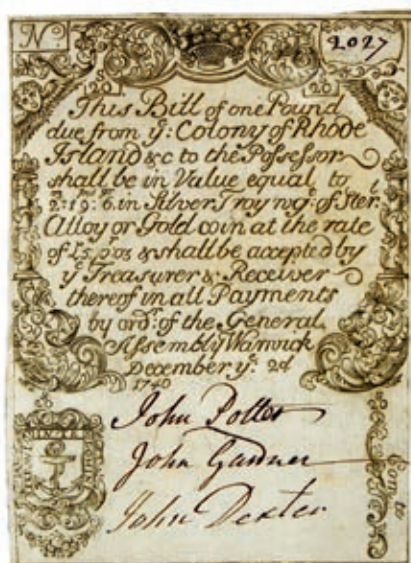 No. 2027
S 20 20
This Bill of one Pound
due from ye: Colony of Rhode
Island &c to the Possessor
shall be in Value equal to
2: 19: 6. in Silver Troy wgt: of Ster:
Alloy or Gold coin at the rate
of oz & shall be accepted by
ye Treasurer & Receiver
thereof in all Payments
by ordr: of the General
Assembly Warwick
December ye: 2d
1740
John Potter
John Gardner
John Dexter